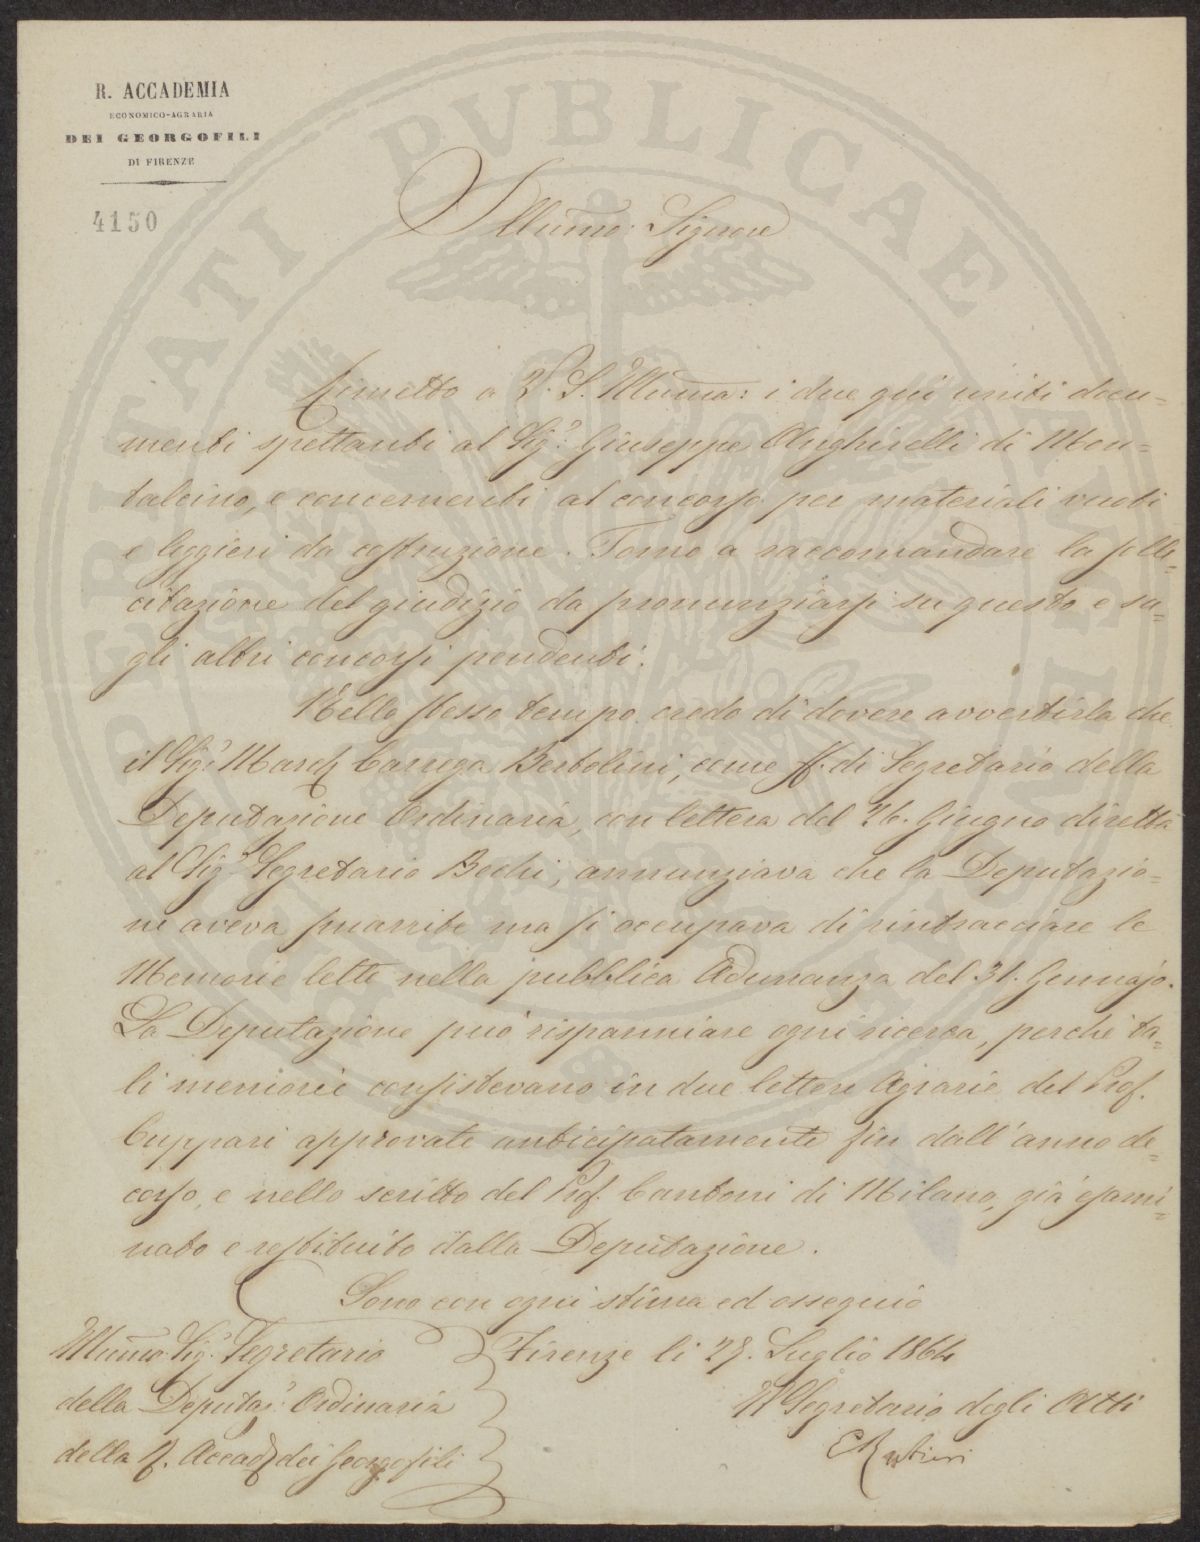 R. ACCADEMIA
ECONOMICO-AGRARIA
DEI GEORGOFILI
DI FIRENZE
4150
PROSPERITATI PUBLICAE AUGENDAE
Illumo: Signore
Rimetto a V. S. Illuma: i due qui uniti docu=
menti spettanti al Sigr. Giuseppe Anghirelli di Mon=
talcino, e concernenti al concorso per materiali vuoti
e leggieri da costruzione. Torno a raccomandare la solle=
citazione del giudizio da pronunziarsi su questo e su=
gli altri concorsi pendenti.
Nello stesso tempo credo di dovere avvertirla che
il Sigr. March. Carrega Bertolini, come ff. di Segretario della
Deputazione Ordinaria, con lettera del 26. Giugno diretta
al Sigr. Segretario Bechi, annunziava che la Deputazio=
ne aveva smarrite ma si occupava di rintracciare le
Memorie lette nella pubblica Adunanza del 31. Gennajo.
La Deputazione può risparmiare ogni ricerca, perchè ta=
li memorie consistevano in due lettere Agrarie del Prof.
Cuppari approvate anticipatamente fin dall'anno de=
corso, e nello scritto del Prof. Cantoni di Milano, già esami=
nato e restituito dalla Deputazione.
Sono con ogni stima ed ossequio
Illumo Sigr. Segretario
della Deputaz. Ordinaria
della R. Accad. dei Georgofili
Firenze li 27. Luglio 1864
Il Segretario degli Atti
E Rubieri